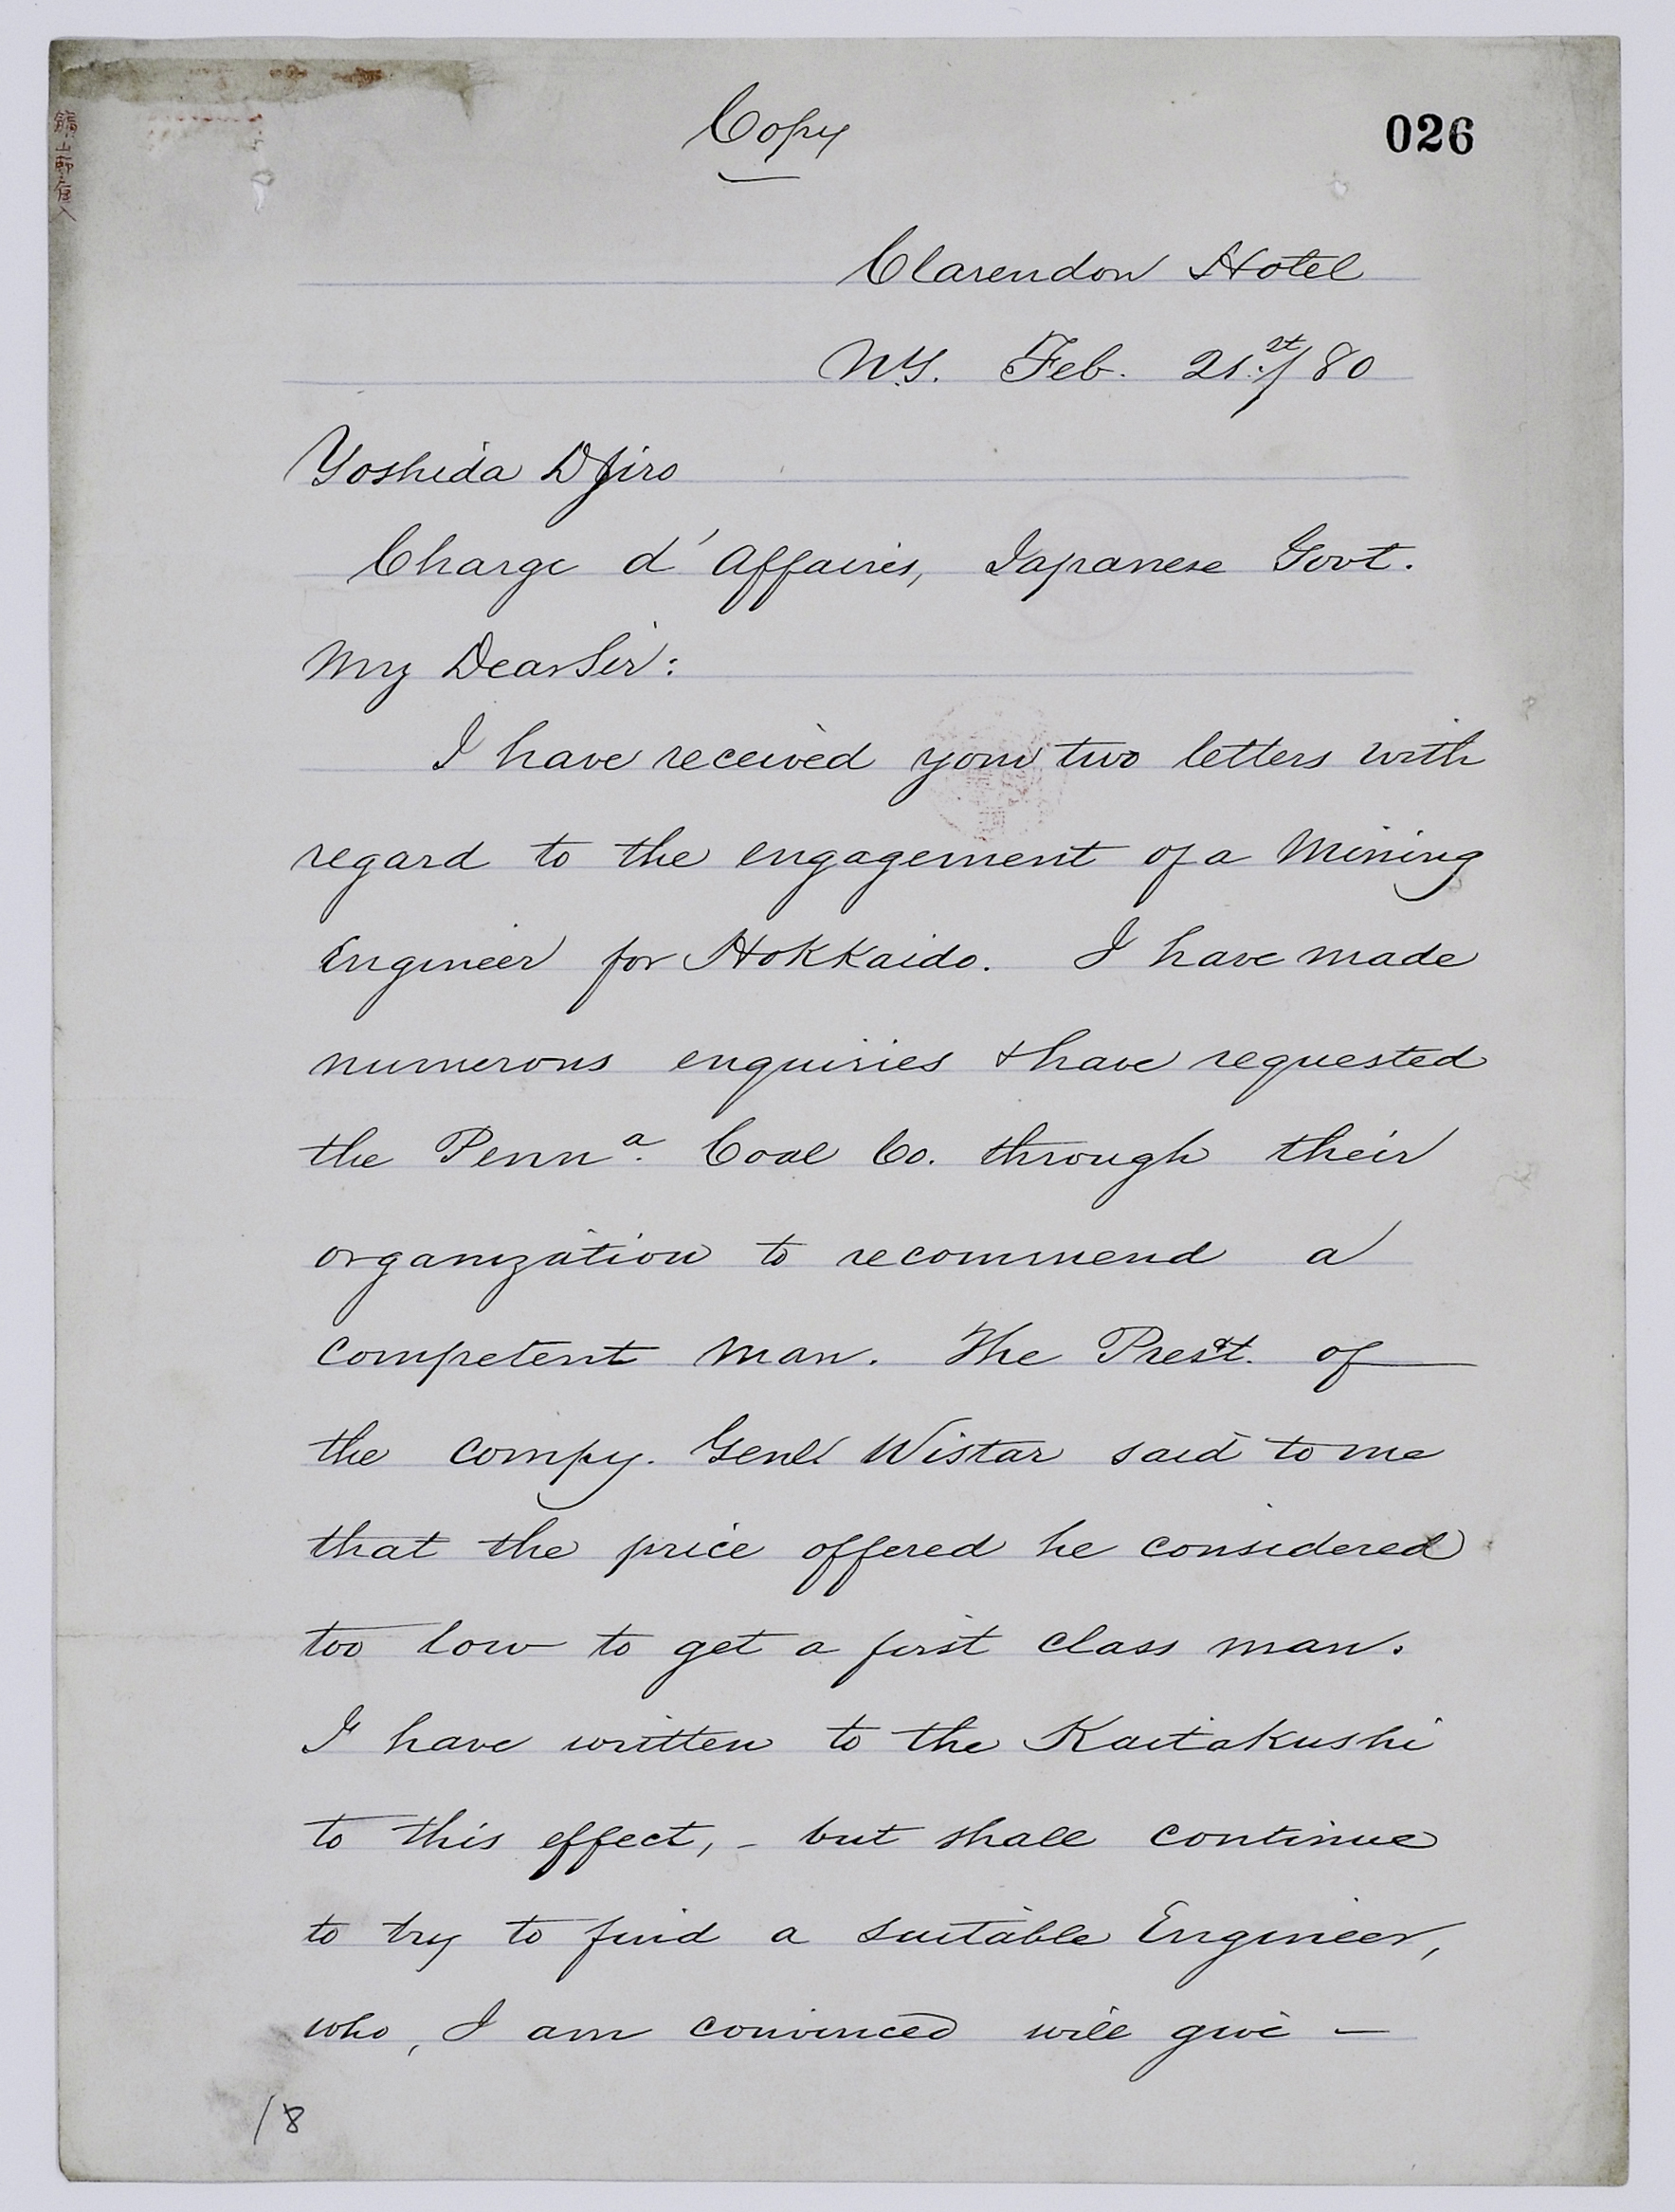 Copy
026
Clarendon Hotel
N.Y. Feb. 21.st/80
Yoshida Djiro
Charge d'Affaires, Japanese Govt.
My Dear Sir:
I have received your two letters with
regard to the engagement of a Mining
Engineer for Hokkaido. I have made
numerous enquiries & have requested
the Penna. Coal Co. through their
organization to recommend a
competent man. The Prest. of
the compy. Genl. Wistar said to me
that the price offered he considered
too low to get a first class man.
I have written to the Kaitakushi
to this effect, - but shall continue
to try to find a suitable Engineer,
who, I am convinced will give -
18